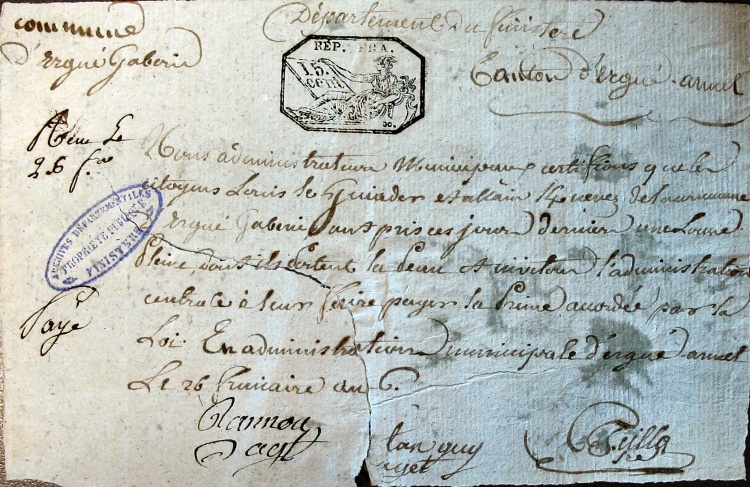 Département du finistere
commune
d'Ergué Gaberic
RÉP. FRA.
15.
CENT.
Canton d'Ergué-armel
26 f.re
Nous administrateurs Municipaux certifions que les
citoyens Louis le et allain de la commune
d'Ergué Gaberic ont pris ces jours derniers une Louve
pleine, dont ils portent la peau et invitons l'administration
centrale à leur faire payer la Prime accordée par la
Loi. En administration municipale d'ergué-armel
Le 26 frimaire an 6.
ARCHIVES DÉPARTEMENTALES
PROPRIÉTÉ PUBLIQUE
FINISTÈRE
Payé
agt
tanguy
agt